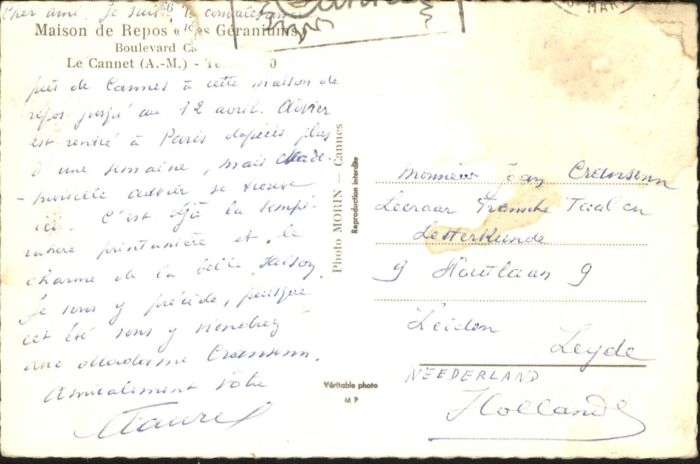 Cher ami. Je suis
Maison de Repos Les Géraniums
Boulevard
Le Cannet (A.-M.) -
près de Cannes à cette maison de
repos jusqu'au 12 avril.
est rentré à Paris depuis plus
d'une semaine, mais Made-
-moiselle se trouve
ici. C'est déjà la tempé-
rature printanière et le
charme de la belle saison.
Je vous y précède, puisque
cet été vous y viendrez
avec Madame Cremsenn.
Amicalement vôtre
Cannes
MARS
Photo MORIN — Cannes
Reproduction interdite
Véritable photo
M P
Monsieur Jean Cremsenn
Leeraar Fransche Taal en
Letterkunde
9 Houtlaan 9
Leiden
Leyde
NEEDERLAND
Hollande